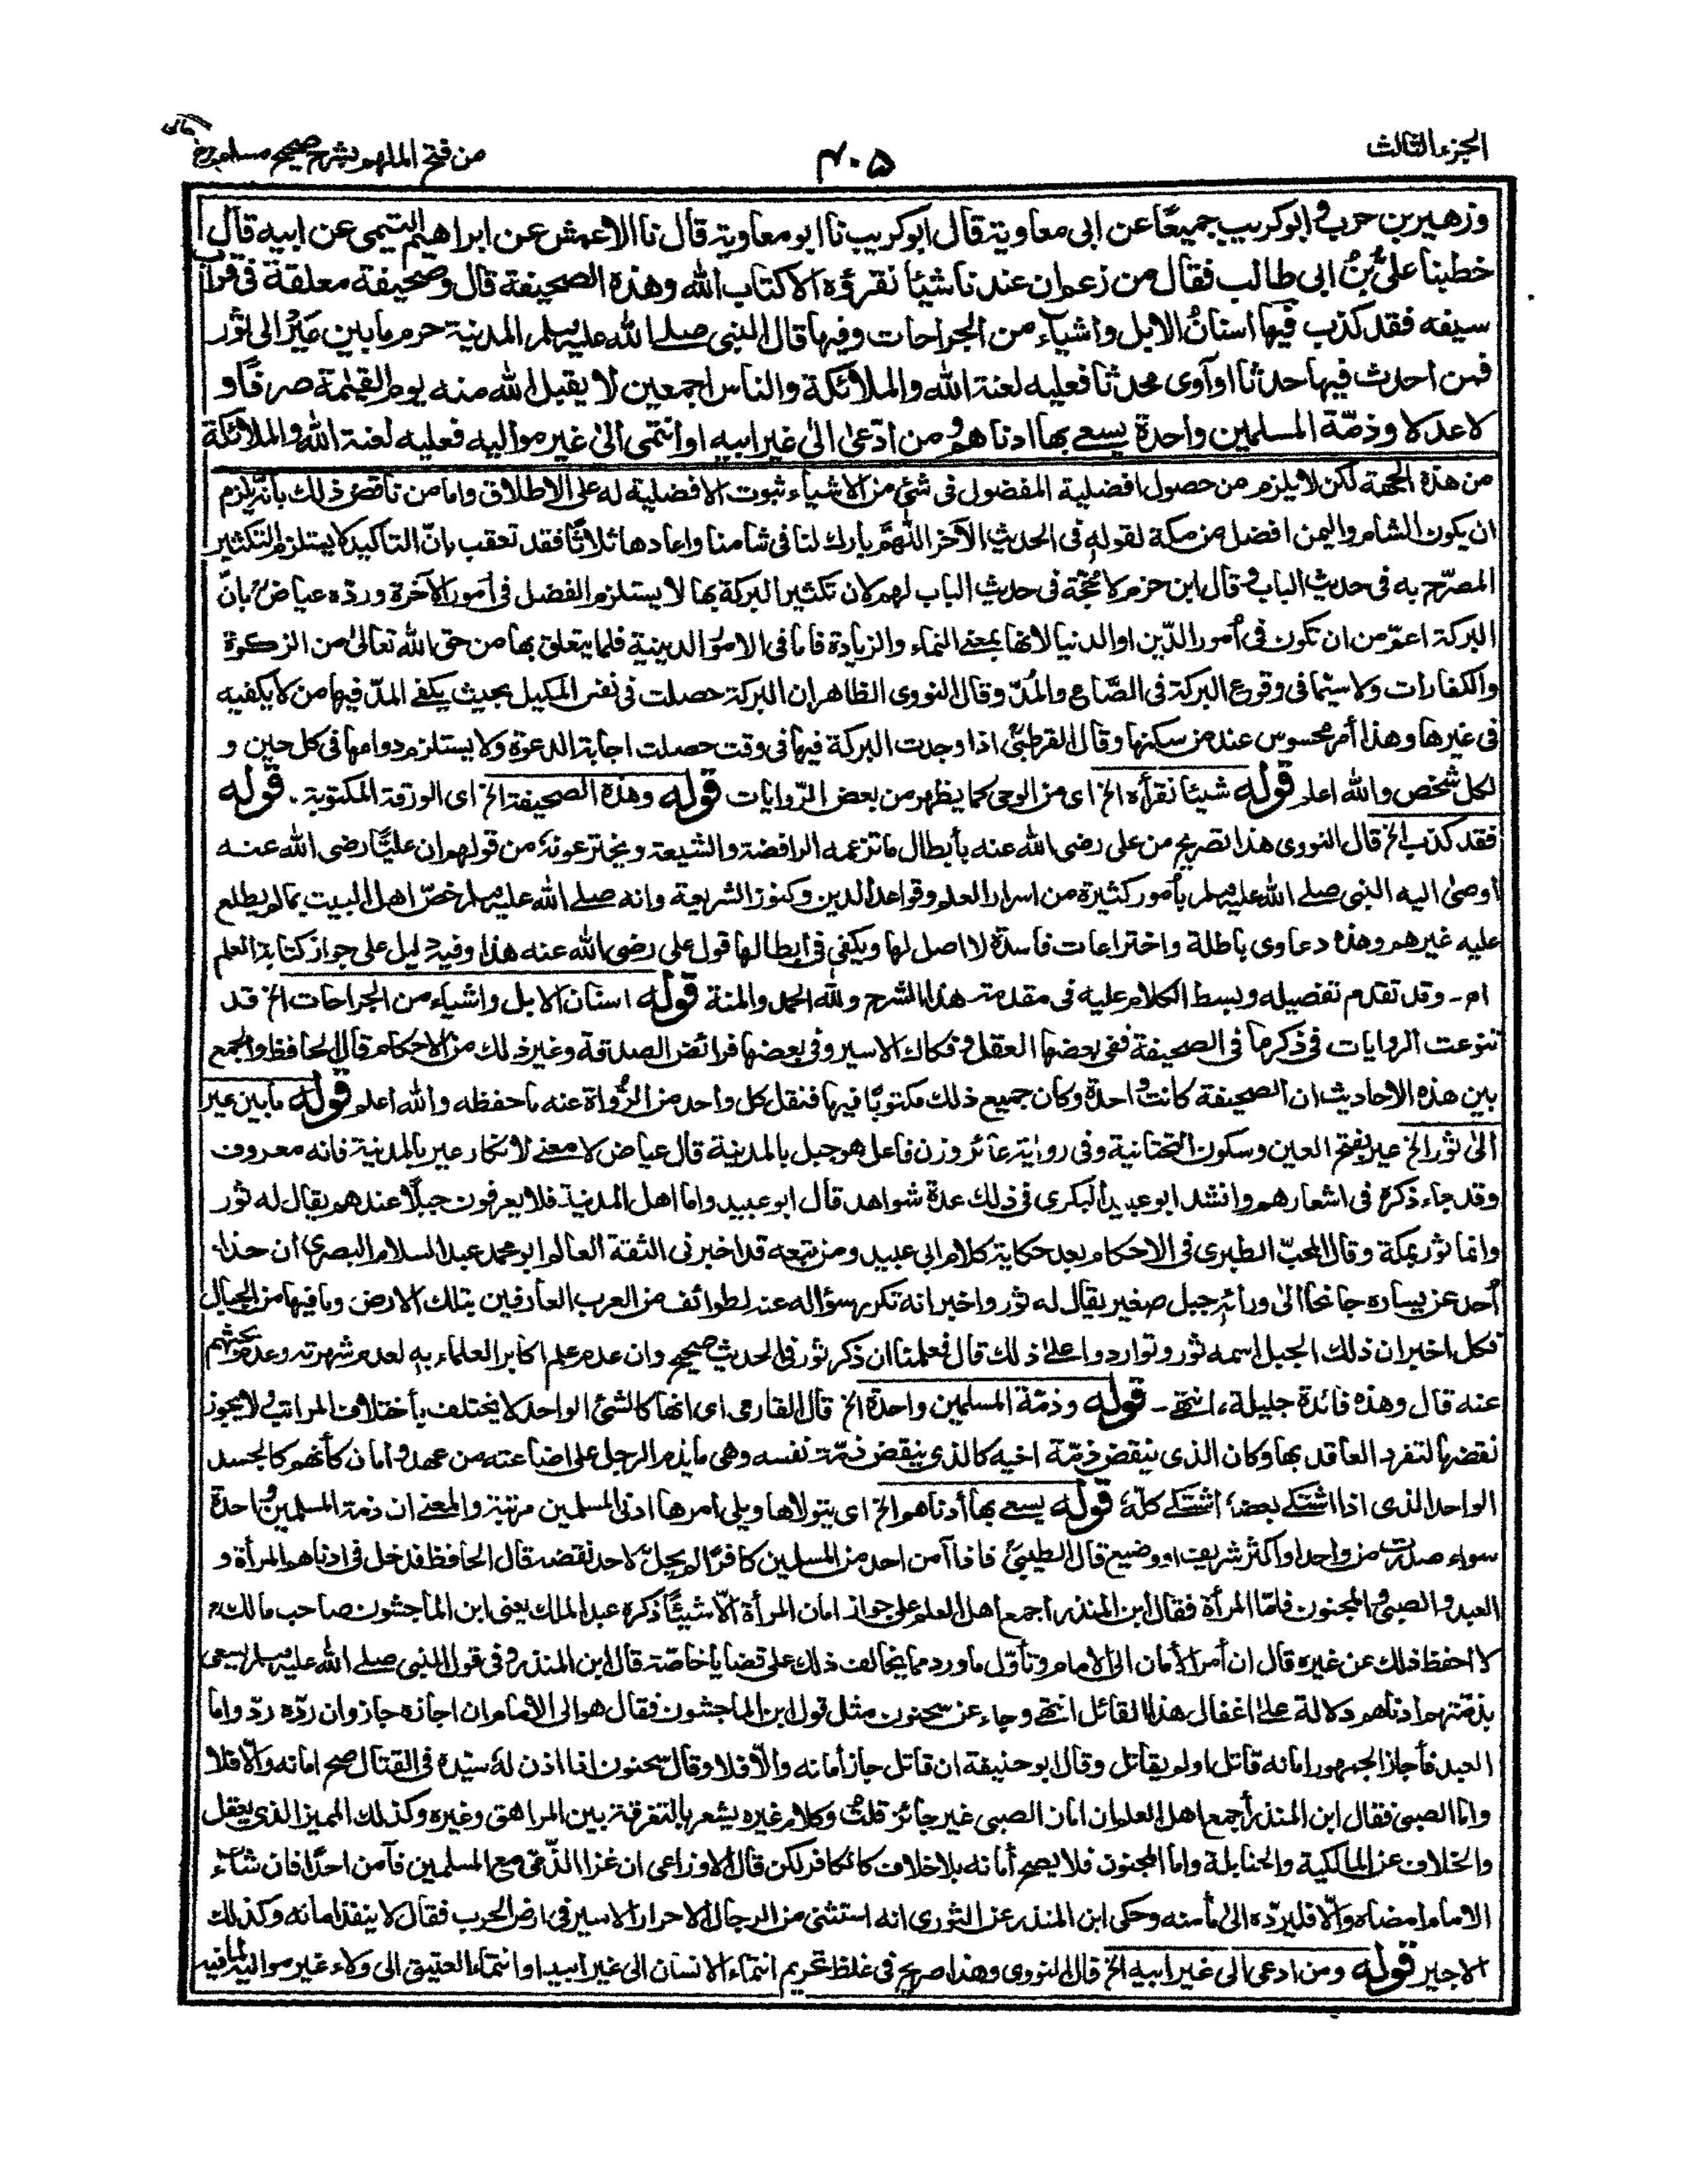 الجزء الثالث
٤٠٥
من فتح الملهم بشرح صحيح مسلم
وزهير بن حرب وابو كريب جميعًا عن ابى معاوية قال ابو كريب نا ابو معاوية قال نا الاعمش عن ابراهيم التيمى عن ابيه قال
خطبنا علىُّ بنُ ابى طالب فقال من زعم ان عندنا شيئا نقرؤه الا كتاب الله وهذه الصحيفة قال وصحيفة معلقة فى قراب
سيفه فقد كذب فيها اسنانُ الابل واشياء من الجراحات وفيها قال النبى صلى الله عليه وسلم المدينة حرم ما بين عَيْر الى ثور
فمن احدث فيها حدثا او آوى محدثا فعليه لعنة الله والملائكة والناس اجمعين لا يقبل الله منه يوم القيٰمة صرفًا و
لا عدلا وذمّة المسلمين واحدة يسعى بها ادناهم ومن ادّعىٰ الىٰ غير ابيه او انتمى الىٰ غير مواليه فعليه لعنة الله والملائكة
من هذه الجهة لكن لا يلزم من حصول افضلية المفضول فى شئ من الاشياء ثبوت الافضلية له على الاطلاق واما من ناقض ذلك بانه يلزم
ان يكون الشام واليمن افضل من مكة لقوله فى الحديث الآخر اللهمّ بارك لنا فى شامنا واعادها ثلاثًا فقد تعقب بانّ التاكيد لا يستلزم التكثير
المصرّح به فى حديث الباب وقال ابن حزم لا حُجّة فى حديث الباب لهم لان تكثير البركة بها لا يستلزم الفضل فى امور الآخرة وردّه عياض بانّ
البركة اعمّ من ان تكون فى اُمور الدّين او الدنيا لانها بمعنى النماء والزيادة فاما فى الامور الدينية فلما يتعلق بها من حق الله تعالىٰ من الزكوٰة
والكفارات ولا سيّما فى وقوع البركة فى الصّاع والمُدّ وقال النووى الظاهر ان البركة حصلت فى نفس المكيل بحيث يكفى المدّ فيها من لا يكفيه
فى غيرها وهذا أمر محسوس عند من سكنها وقال القرطبىّ اذا وجدت البركة فيها فى وقت حصلت اجابة الدعوة ولا يستلزم دوامها فى كل حين و
لكل شخص والله اعلم قوله شيئا نقرأه الخ اى من الوحى كما يظهر من بعض الرّوايات قوله وهذه الصحيفة الخ اى الورقة المكتوبة. قوله
فقد كذب الخ قال النووى هذا تصريح من على رضى الله عنه بأبطال ما تزعمه الرافضة والشيعة ويخترعونه من قولهم ان عليًّا رضى الله عنه
اوصىٰ اليه النبى صلے الله عليه وسلم بأمور كثيرة من اسرار العلم وقواعد الدين وكنوز الشريعة وانه صلے الله عليه وسلم خصّ اهل البيت بما لم يطلع
عليه غيرهم وهذه دعاوى باطلة واختراعات فاسدة لا اصل لها ويكفى فى ابطالها قول على رضى الله عنه هذا وفيه دليل على جواز كتابة العلم
اه - وقد تقدم تفصيله وبسط الكلام عليه فى مقدمة هذا الشرح ولله الحمد والمنة قوله اسنان الابل واشياء من الجراحات الخ قد
تنوعت الروايات فى ذكر ما فى الصحيفة ففى بعضها العقل وفكاك الاسير وفى بعضها فرائض الصدقة وغير ذلك من الاحكام قال الحافظ والجمع
بين هذه الاحاديث ان الصحيفة كانت واحدة وكان جميع ذلك مكتوبًا فيها فنقل كل واحد من الرُّواة عنه ما حفظه والله اعلم قوله ما بين عير
الىٰ ثور الخ عير بفتح العين وسكون التحتانية وفى رواية عائر وزن فاعل هو جبل بالمدينة قال عياض لا معنے لانكار عير بالمدينة فانه معروف
وقد جاء ذكره فى اشعارهم وانشد ابو عبيد البكرى فى ذلك عدة شواهد قال ابو عبيد واما اهل المدينة فلا يعرفون جبلًا عندهم يقال له ثور
وانما ثور بمكة وقال المحبّ الطبرى فى الاحكام بعد حكاية كلام ابى عبيد ومن تبعه قد اخبرنى الثقة العالم ابو محمد عبد السلام البصرى ان حذاء
اُحد عن يساره جانحا الىٰ ورائه جبل صغير يقال له ثور واخبر انه تكرر سؤاله عنه لطوائف من العرب العارفين بتلك الارض وما فيها من الجبال
فكل اخبر ان ذلك الجبل اسمه ثور وتواردوا علىٰ ذلك قال فعلمنا ان ذكر ثور فى الحديث صحيح وان عدم علم اكابر العلماء به لعدم شهرته وعدم بحثهم
عنه قال وهذه فائدة جليلة، انتهى - قوله وذمّة المسلمين واحدة الخ قال القارى اى انها كالشئ الواحد لا يختلف بأختلاف المراتب ولا يجوز
نقضها لتفرد العاقد بها وكان الذى ينقض ذمّة اخيه كالذى ينقض ذمّة نفسه وهى ما يذم الرجل على اضاعته من عهد وامان كأنهم كالجسد
الواحد الذى اذا اشتكى بعضه اشتكى كلّه قوله يسعى بها أدناهم الخ اى يتولاها ويلى امرها ادنى المسلمين مرتبة والمعنى ان ذمة المسلمين واحدة
سواء صدرت من واحد او اكثر شريف او وضيع قال الطيبىّ فاذا آمن احد من المسلمين كافرًا لم يحلّ لاحد نقضه قال الحافظ فدخل فى ادناهم المرأة و
العبد والصبى والمجنون فامّا المرأة فقال ابن المنذر أجمع اهل العلم على جواز امان المرأة الّا شيئًا ذكره عبد الملك يعنى ابن الماجشون صاحب مالك
لا احفظ ذلك عن غيره قال ان أمر الأمان الى الامام وتأوّل ما ورد مما يخالف ذلك على قضايا خاصّة قال ابن المنذر وفى قول النبى صلے الله عليه وسلم يسعى
بذمّتهم ادناهم دلالة علىٰ اغفال هذا القائل انتهے وجاء عن سحنون مثل قول ابن الماجشون فقال هو الى الامام ان اجازه جاز وان ردّه ردّ واما
العبد فأجاز الجمهور امانه قاتل او لم يقاتل وقال ابو حنيفة ان قاتل جاز أمانه والّا فلا وقال سحنون اذا اذن له سيّده فى القتال صح امانه والّا فلا
واما الصبى فقال ابن المنذر أجمع اهل العلم ان امان الصبى غير جائز قلتُ وكلام غيره يشعر بالتفرقة بين المراهق وغيره وكذلك المميز الذى يعقل
والخلاف عن المالكية والحنابلة واما المجنون فلا يصح أمانه بلا خلاف كالكافر لكن قال الاوزاعى ان غزا الذّمّى مع المسلمين فآمن احدًا فان شاء
الامام امضاه والّا فليردّه الىٰ مأمنه وحكى ابن المنذر عن الثورى انه استثنى من الرجال الاحرار الاسير فى ارض الحرب فقال لا ينفذ امانه وكذلك
الاجير قوله ومن ادعى الى غير ابيه الخ قال النووى وهذا صريح فى غلظ تحريم انتماء الانسان الى غير ابيه او انتماء العتيق الى ولاء غير مواليه لما فيه